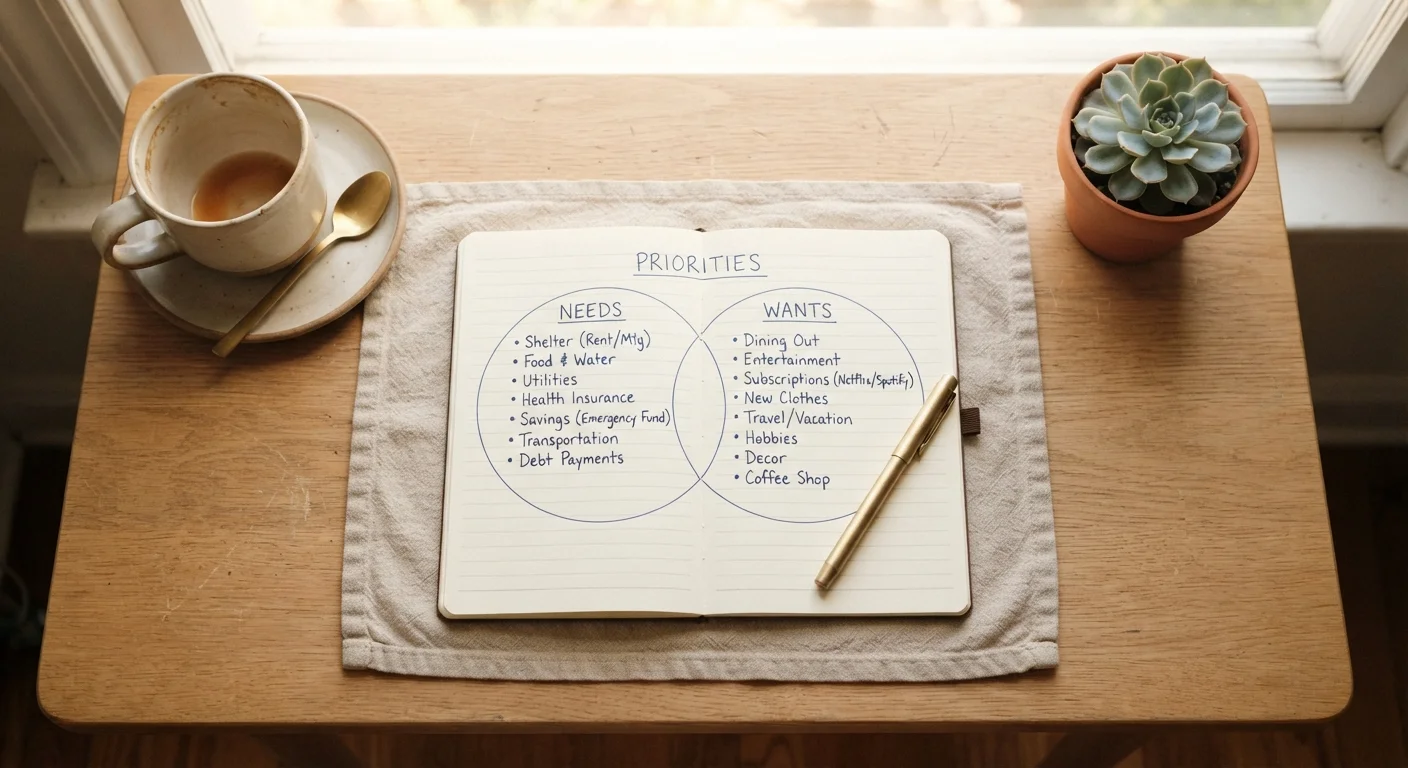 PRIORITIES
NEEDS
• Shelter (Rent/Mtg)
• Food & Water
• Utilities
• Health Insurance
• Savings (Emergency Fund)
• Transportation
• Debt Payments
WANTS
• Dining Out
• Entertainment
• Subscriptions (Netflix/Spotify)
• New Clothes
• Travel/Vacation
• Hobbies
• Decor
• Coffee Shop